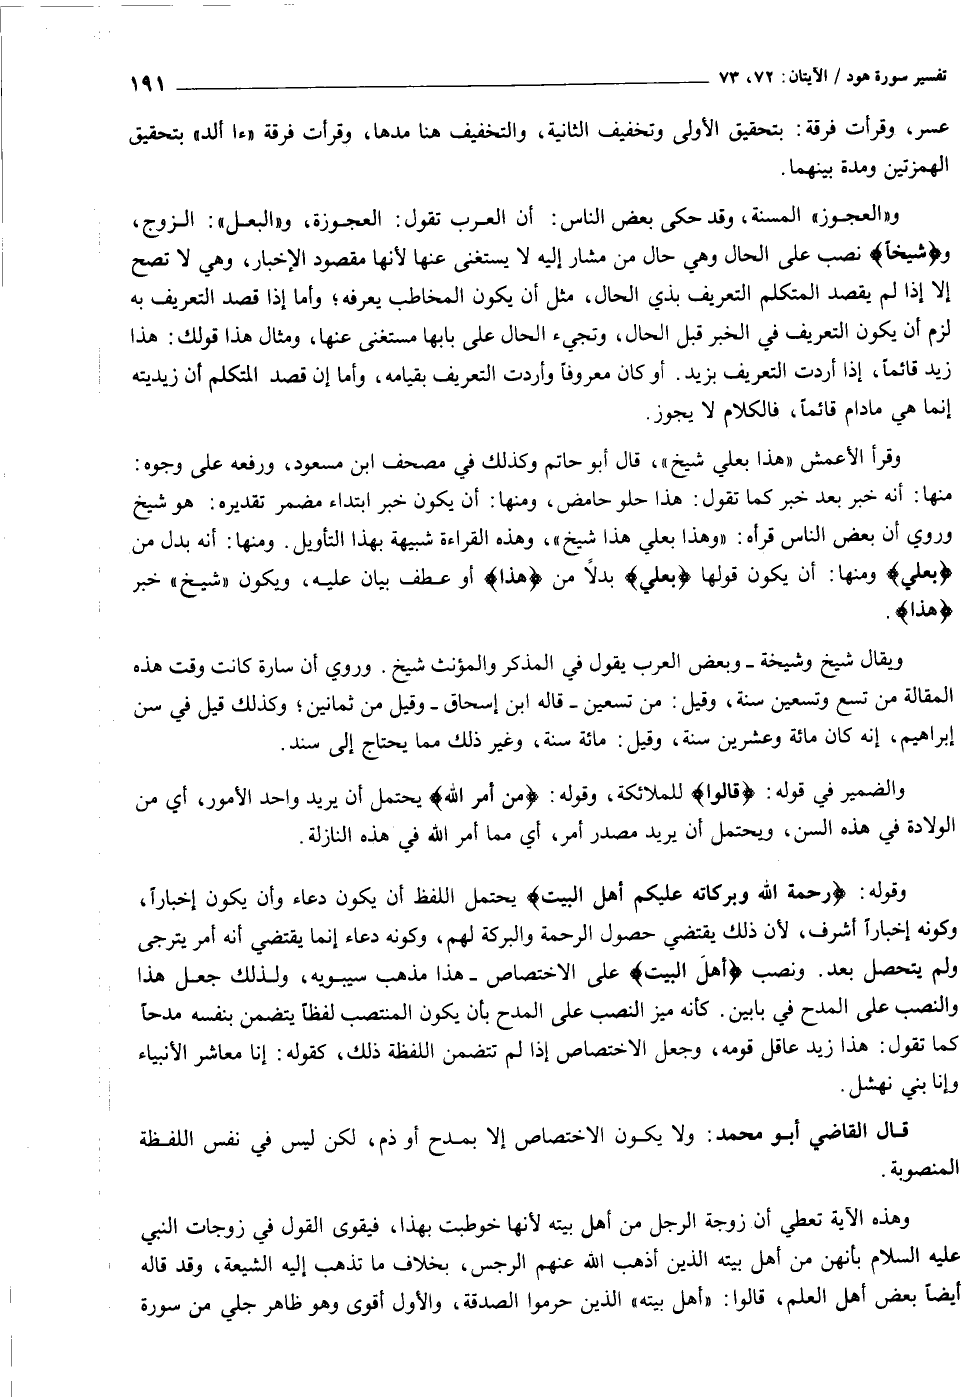 تفسير سورة هود / الآيتان: ٧٢، ٧٣
١٩١
عسر، وقرأت فرقة: بتحقيق الأولى وتخفيف الثانية، والتخفيف هنا مدها، وقرأت فرقة «ءا ألد» بتحقيق
الهمزتين ومدة بينهما.
و«العجوز» المسنة، وقد حكى بعض الناس: أن العرب تقول: العجوزة، و«البعل»: الزوج،
و﴿شيخاً﴾ نصب على الحال وهي حال من مشار إليه لا يستغنى عنها لأنها مقصود الإخبار، وهي لا تصح
إلا إذا لم يقصد المتكلم التعريف بذي الحال، مثل أن يكون المخاطب يعرفه؛ وأما إذا قصد التعريف به
لزم أن يكون التعريف في الخبر قبل الحال، وتجيء الحال على بابها مستغنى عنها، ومثال هذا قولك: هذا
زيد قائماً، إذا أردت التعريف بزيد. أو كان معروفاً وأردت التعريف بقيامه، وأما إن قصد المتكلم أن زيديته
إنما هي مادام قائماً، فالكلام لا يجوز.
وقرأ الأعمش «هذا بعلي شيخ»، قال أبو حاتم وكذلك في مصحف ابن مسعود، ورفعه على وجوه:
منها: أنه خبر بعد خبر كما تقول: هذا حلو حامض، ومنها: أن يكون خبر ابتداء مضمر تقديره: هو شيخ
وروي أن بعض الناس قرأه: «وهذا بعلي هذا شيخ»، وهذه القراءة شبيهة بهذا التأويل. ومنها: أنه بدل من
﴿بعلي﴾ ومنها: أن يكون قولها ﴿بعلي﴾ بدلاً من ﴿هذا﴾ أو عطف بيان عليه، ويكون «شيخ» خبر
﴿هذا﴾.
ويقال شيخ وشيخة ـ وبعض العرب يقول في المذكر والمؤنث شيخ. وروي أن سارة كانت وقت هذه
المقالة من تسع وتسعين سنة، وقيل: من تسعين ـ قاله ابن إسحاق ـ وقيل من ثمانين؛ وكذلك قيل في سن
إبراهيم، إنه كان مائة وعشرين سنة، وقيل: مائة سنة، وغير ذلك مما يحتاج إلى سند.
والضمير في قوله: ﴿قالوا﴾ للملائكة، وقوله: ﴿من أمر الله﴾ يحتمل أن يريد واحد الأمور، أي من
الولادة في هذه السن، ويحتمل أن يريد مصدر أمر، أي مما أمر الله في هذه النازلة.
وقوله: ﴿رحمة الله وبركاته عليكم أهل البيت﴾ يحتمل اللفظ أن يكون دعاء وأن يكون إخباراً،
وكونه إخباراً أشرف، لأن ذلك يقتضي حصول الرحمة والبركة لهم، وكونه دعاء إنما يقتضي أنه أمر يترجى
ولم يتحصل بعد. ونصب ﴿أهلَ البيت﴾ على الاختصاص ـ هذا مذهب سيبويه، ولذلك جعل هذا
والنصب على المدح في بابين. كأنه ميز النصب على المدح بأن يكون المنتصب لفظاً يتضمن بنفسه مدحاً
كما تقول: هذا زيد عاقل قومه، وجعل الاختصاص إذا لم تتضمن اللفظة ذلك، كقوله: إنا معاشر الأنبياء
وإنا بني نهشل.
قال القاضي أبو محمد: ولا يكون الاختصاص إلا بمدح أو ذم، لكن ليس في نفس اللفظة
المنصوبة.
وهذه الآية تعطي أن زوجة الرجل من أهل بيته لأنها خوطبت بهذا، فيقوى القول في زوجات النبي
عليه السلام بأنهن من أهل بيته الذين أذهب الله عنهم الرجس، بخلاف ما تذهب إليه الشيعة، وقد قاله
أيضاً بعض أهل العلم، قالوا: «أهل بيته» الذين حرموا الصدقة، والأول أقوى وهو ظاهر جلي من سورة